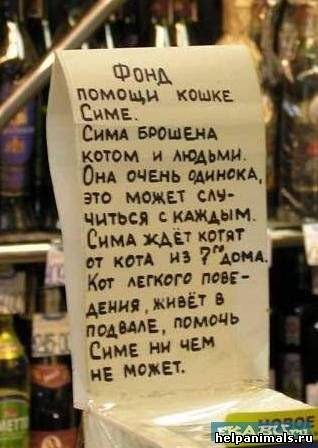 Фонд
помощи кошке
Симе.
Сима брошена
котом и людьми.
Она очень одинока,
это может слу-
читься с каждым.
Сима ждёт котят
от кота из 7го дома.
Кот легкого пове-
дения, живёт в
подвале, помочь
Симе ни чем
не может.
НОВОЕ
helpanimals.ru